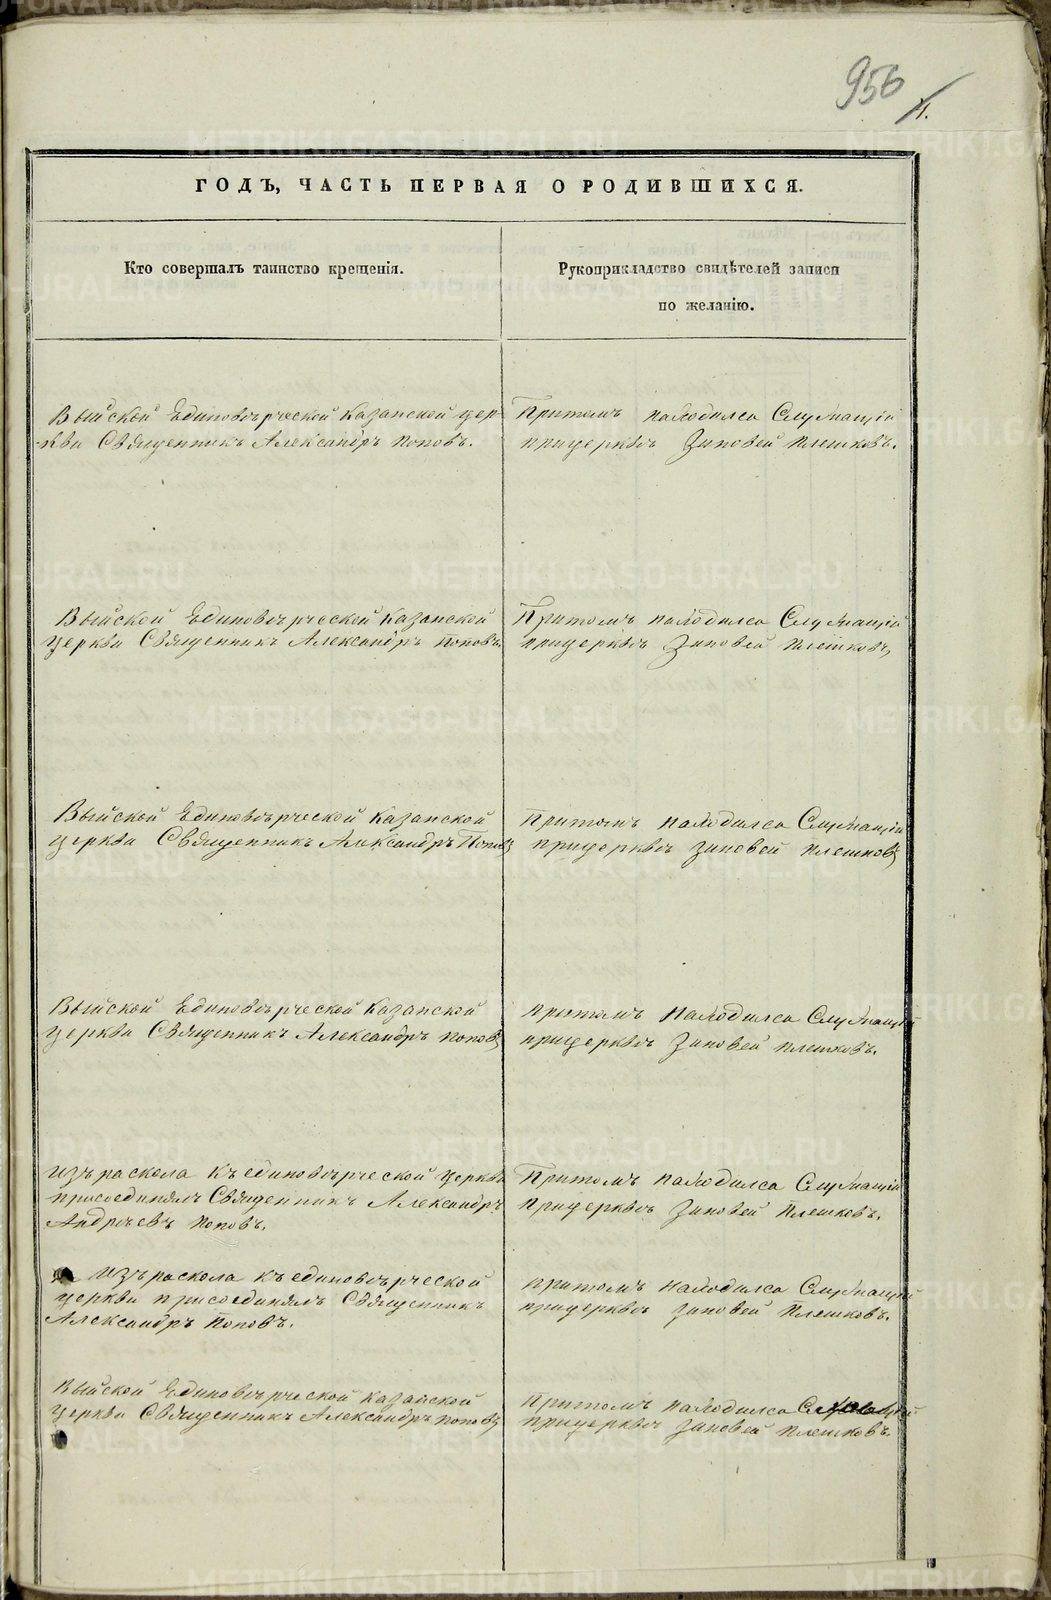 956
1.
ГОДЪ, ЧАСТЬ ПЕРВАЯ О РОДИВШИХСЯ.
Кто совершалъ таинство крещенія.
Рукоприкладство свидѣтелей записи
по желанію.
Выйской Единовѣрческой Казанской цер-
-кви Священникъ Александръ Поповъ.
Притомъ находился Служащій
прицерквѣ Зиновей Плешковъ.
Выйской Единовѣрческой Казанской
церкви Священникъ Александръ Поповъ.
Притомъ находился Служащій
прицерквѣ Зиновей Плешковъ,
Выйской Единовѣрческой Казанской
церкви Священникъ Александръ Поповъ
Притомъ находился Служащій
прицерквѣ Зиновей Плешковъ
Выйской Единовѣрческой Казанской
церкви Священникъ Александръ Поповъ
притомъ находился Служащій
прицерквѣ Зиновей Плешковъ.
Изъ раскола къ единовѣрческой церкви
присоединялъ Священникъ Александръ
Андрѣевъ Поповъ.
Притомъ находился Служащій
Прицерквѣ Зиновей Плешковъ.
Изъ раскола къ единовѣрческой
церкви присоединялъ Священникъ
Александръ Поповъ.
притомъ находился Служащій
прицерквѣ Зиновей Плешковъ.
Выйской Единовѣрческой Казанской
церкви Священникъ Александръ Поповъ
Притомъ находился Служащій
прицерквѣ Зиновей Плешковъ.
METRIKI.GASO-URAL.RU